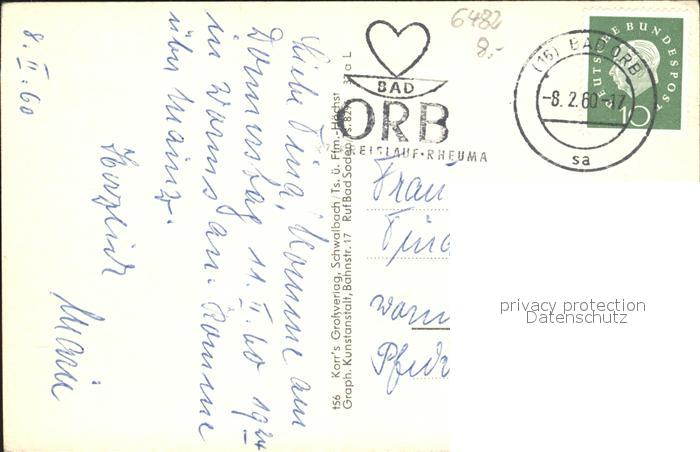 8. II. 60
Liebe Tina, Komme am
Donnerstag 11. II. 60 19 24
in Worms an. Komme
über Mainz.
Herzlich
Marie
156 Korr's Großverlag, Schwalbach / Ts. ü. Ffm.-Höchst
Graph. Kunstanstalt, Bahnstr. 17 Ruf Bad Soden
a L
6482
8,-
BAD
ORB
KREISLAUF·RHEUMA
(16) BAD ORB
-8.2.60-17
sa
DEUTSCHE BUNDESPOST
10
Frau
Tina
Worm
privacy protection
Datenschutz